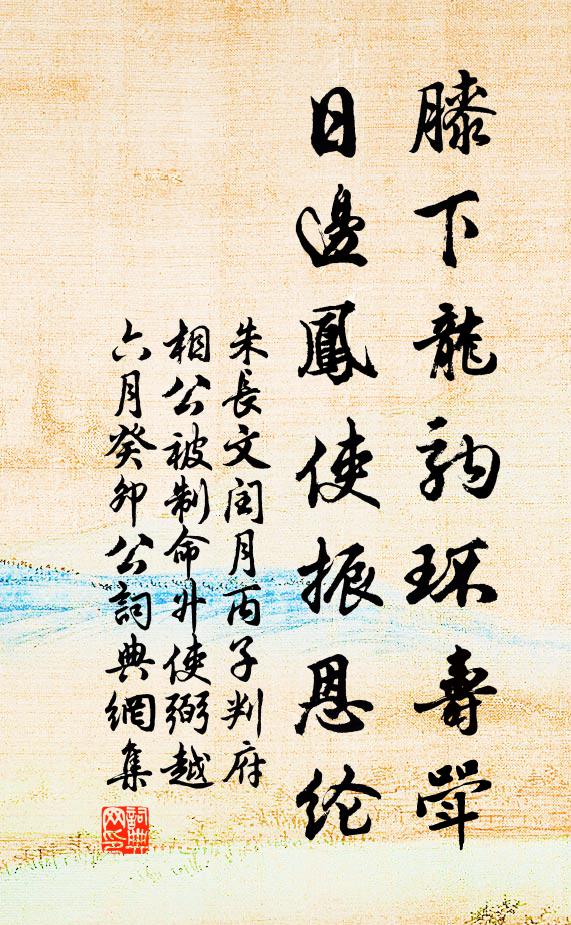 膝下龍韵環壽斝
日邊鳳使振恩纶
朱長文閏月丙子判府
相公被制命升使弼越
六月癸卯公詞典網集
詞典網印